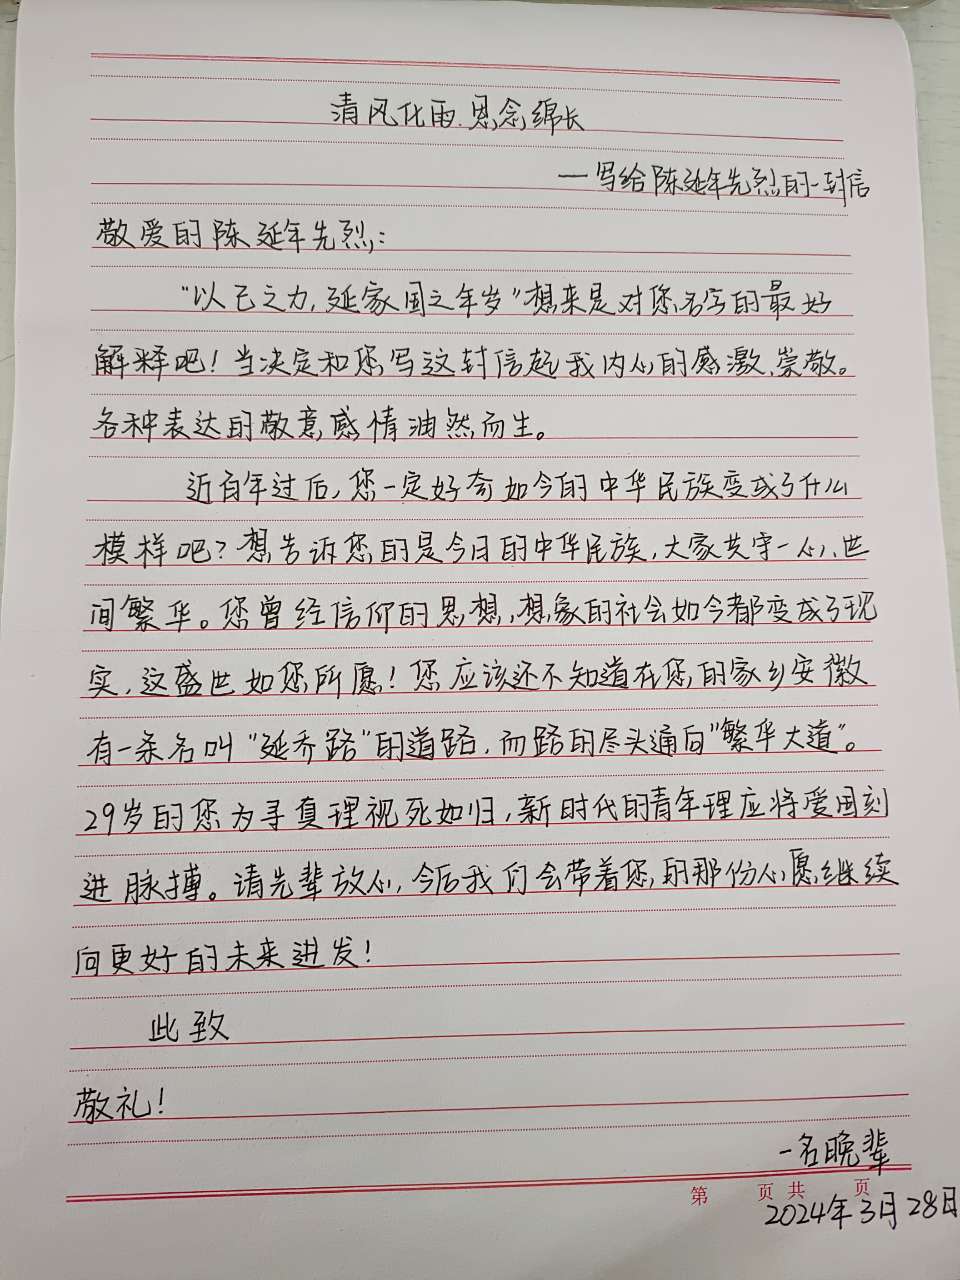 清风化雨.思念绵长
—写给陈延年先烈的一封信
敬爱的陈延年先烈:
"以己之力,延家国之年岁"想来是对您名字的最好
解释吧!当决定和您写这封信起我内心的感激、崇敬。
各种表达的敬意感情油然而生。
近百年过后,您一定好奇如今的中华民族变成了什么
模样吧?想告诉您的是今日的中华民族,大家共守一心,世
间繁华。您曾经信仰的思想,想象的社会如今都变成了现
实,这盛世如您所愿!您应该还不知道在您的家乡安徽
有一条名叫"延乔路"的道路,而路的尽头通向"繁华大道"。
29岁的您为寻真理视死如归,新时代的青年理应将爱国刻
进脉搏。请先辈放心,今后我们会带着您的那份心愿继续
向更好的未来进发!
此致
敬礼!
一名晚辈
第 页 共 页
2024年3月28日